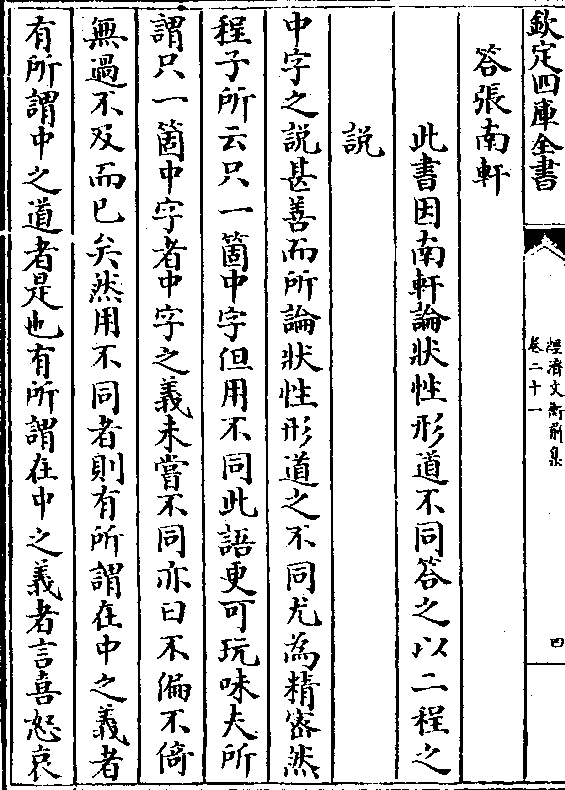 欽定四庫全書
經濟文衡前集
卷二十一
四
答張南軒
此書因南軒論狀性形道不同答之以二程之
説
中字之説甚善而所論狀性形道之不同尤為精宻然
程子所云只一箇中字但用不同此語更可玩味夫所
謂只一箇中字者中字之義未嘗不同亦曰不偏不倚
無過不及而已矣然用不同者則有所謂在中之義者
有所謂中之道者是也有所謂在中之義者言喜怒哀